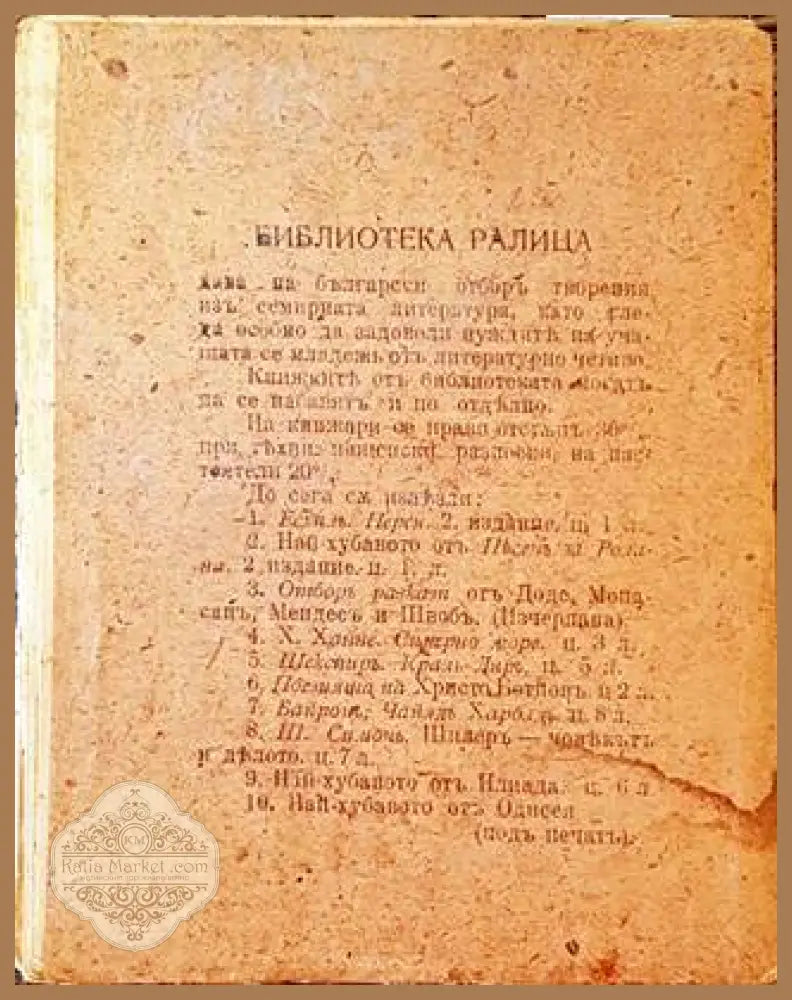 БИБЛИОТЕКА РАЛИЦА
дава на български отборъ творения
изъ семирната литература, като гле-
да особно да задоволи нуждитѣ на уча-
щата се младежь отъ литературно четиво.
Книжкитѣ отъ библиотеката могатъ
да се набавятъ и по отдѣлно.
На книжари се прави отстѫпъ 30%
при разноски, на нас-
тоятели 20%.
До сега сѫ излѣзли:
1. Есхилъ. Перси. 2. издание. ц. 1 л.
2. Най-хубавото отъ Пѣсень за Рола-
на. 2 издание. ц. 1. л.
3. Отборъ разкази отъ Доде, Мопа-
санъ, Мендесъ и Швобъ. (Изчерпана).
4. Х. Хайне. море. ц. 3 л.
5. Шекспиръ. Краль Лиръ. ц. 5 л.
6. Поезията на Христа Ботйовъ. ц 2 л.
7. Байронъ. Чайлдъ Харолдъ. ц. 8 л.
8. Ш. Симочъ. Шилеръ — човѣкътъ
и дѣлото. ц. 7 л.
9. Най-хубавото отъ Илиада. ц. 6 л
10. Най-хубавото отъ Одисея
(подъ печатъ).
KM
Katia Market .com